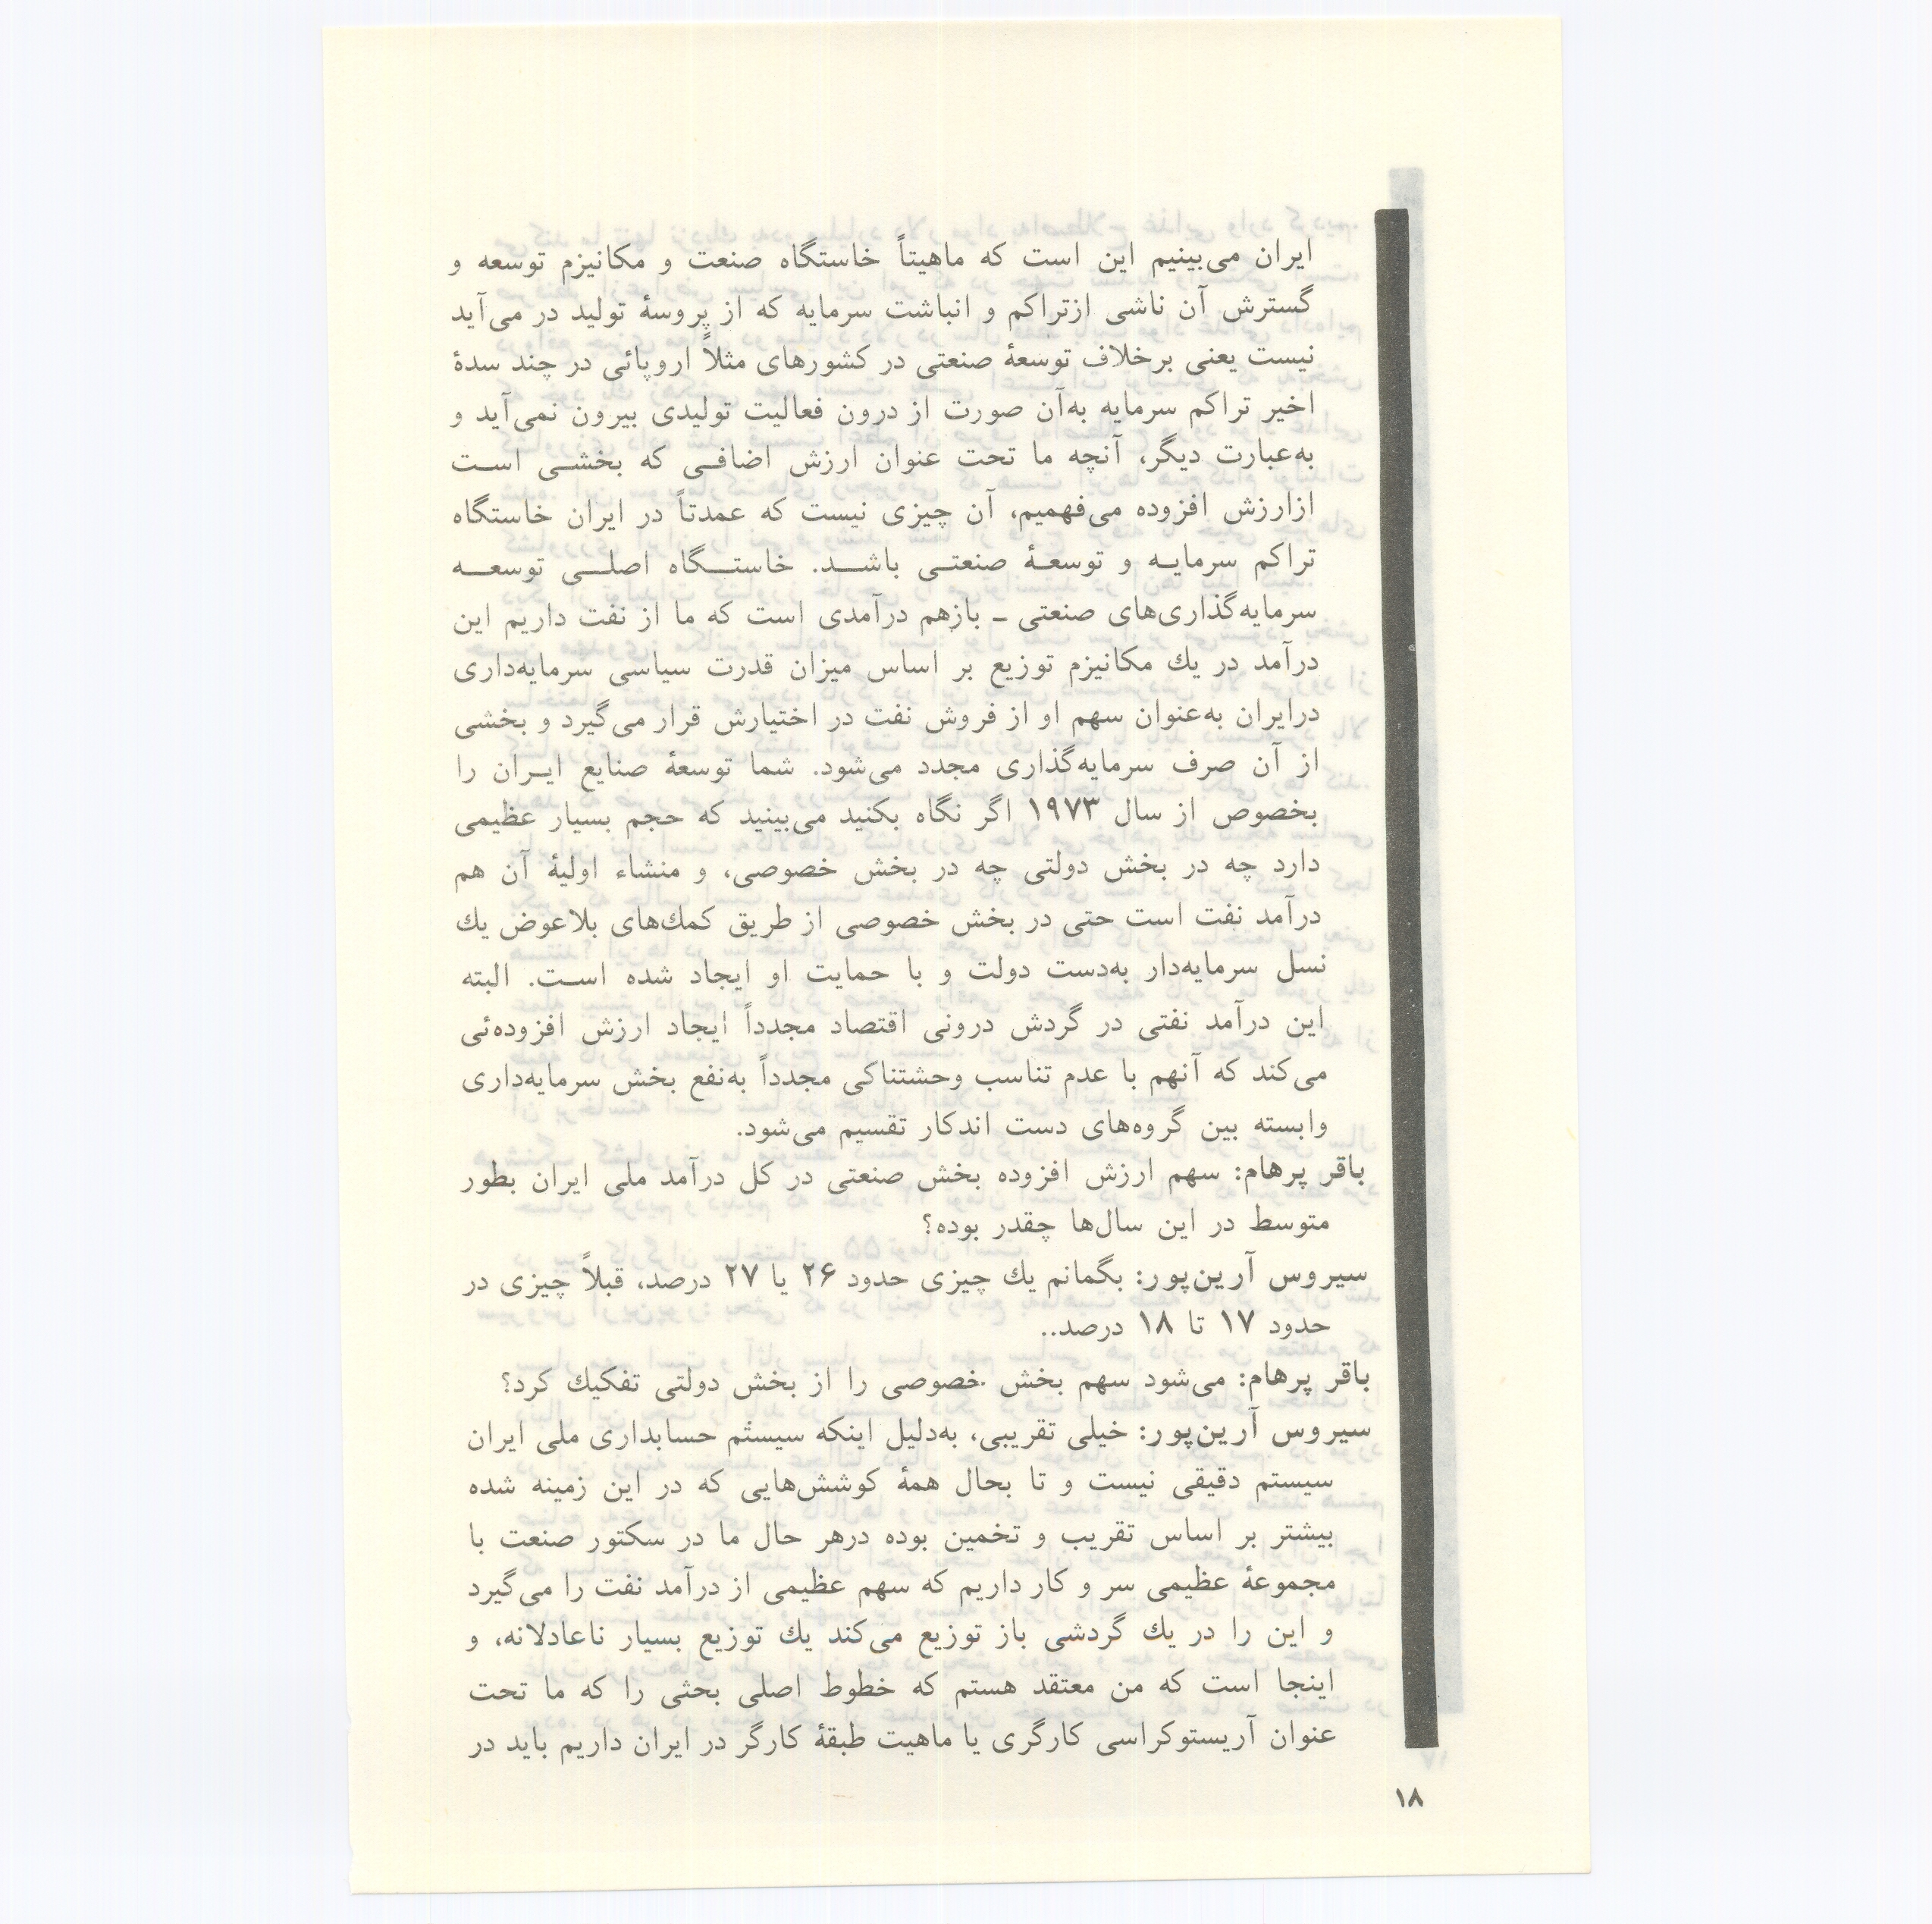 ایران می‌بینیم این است که ماهیتاً خاستگاه صنعت و مکانیزم توسعه و
گسترش آن ناشی ازتراکم و انباشت سرمایه که از پروسهٔ تولید در می‌آید
نیست یعنی برخلاف توسعهٔ صنعتی در کشورهای مثلاً اروپائی در چند سدهٔ
اخیر تراکم سرمایه به‌آن صورت از درون فعالیت تولیدی بیرون نمی‌آید و
به‌عبارت دیگر، آنچه ما تحت عنوان ارزش اضافـی که بخشـی اسـت
ازارزش افزوده می‌فهمیم، آن چیزی نیست که عمدتاً در ایران خاستگاه
تراکم سرمایـه و توسعـهٔ صنعتـی باشـد. خاستـگاه اصلـی توسعـه
سرمایه‌گذاری‌های صنعتی ـ بازهم درآمدی است که ما از نفت داریم این
درآمد در یك مکانیزم توزیع بر اساس میزان قدرت سیاسی سرمایه‌داری
درایران به‌عنوان سهم او از فروش نفت در اختیارش قرار می‌گیرد و بخشی
از آن صرف سرمایه‌گذاری مجدد می‌شود. شما توسعهٔ صنایع ایـران را
بخصوص از سال ۱۹۷۳ اگر نگاه بکنید می‌بینید که حجم بسیار عظیمی
دارد چه در بخش دولتی چه در بخش خصوصی، و منشاء اولیهٔ آن هم
درآمد نفت است حتی در بخش خصوصی از طریق کمك‌های بلاعوض یك
نسل سرمایه‌دار به‌دست دولت و با حمایت او ایجاد شده اسـت. البته
این درآمد نفتی در گردش درونی اقتصاد مجدداً ایجاد ارزش افزوده‌ئی
می‌کند که آنهم با عدم تناسب وحشتناکی مجدداً به‌نفع بخش سرمایه‌داری
وابسته بین گروه‌های دست اندکار تقسیم می‌شود.
باقر پرهام: سهم ارزش افزوده بخش صنعتی در کل درآمد ملی ایران بطور
متوسط در این سال‌ها چقدر بوده؟
سیروس آرین‌پور: بگمانم یك چیزی حدود ۲۶ یا ۲۷ درصد، قبلاً چیزی در
حدود ۱۷ تا ۱۸ درصد..
باقر پرهام: می‌شود سهم بخش خصوصی را از بخش دولتی تفکیك کرد؟
سیروس آرین‌پور: خیلی تقریبی، به‌دلیل اینکه سیستم حسابداری ملی ایران
سیستم دقیقی نیست و تا بحال همهٔ کوشش‌هایی که در این زمینه شده
بیشتر بر اساس تقریب و تخمین بوده درهر حال ما در سکتور صنعت با
مجموعهٔ عظیمی سر و کار داریم که سهم عظیمی از درآمد نفت را می‌گیرد
و این را در یك گردشی باز توزیع می‌کند یك توزیع بسیار ناعادلانه، و
اینجا است که من معتقد هستم که خطوط اصلی بحثی را که ما تحت
عنوان آریستوکراسی کارگری یا ماهیت طبقهٔ کارگر در ایران داریم باید در
۱۸